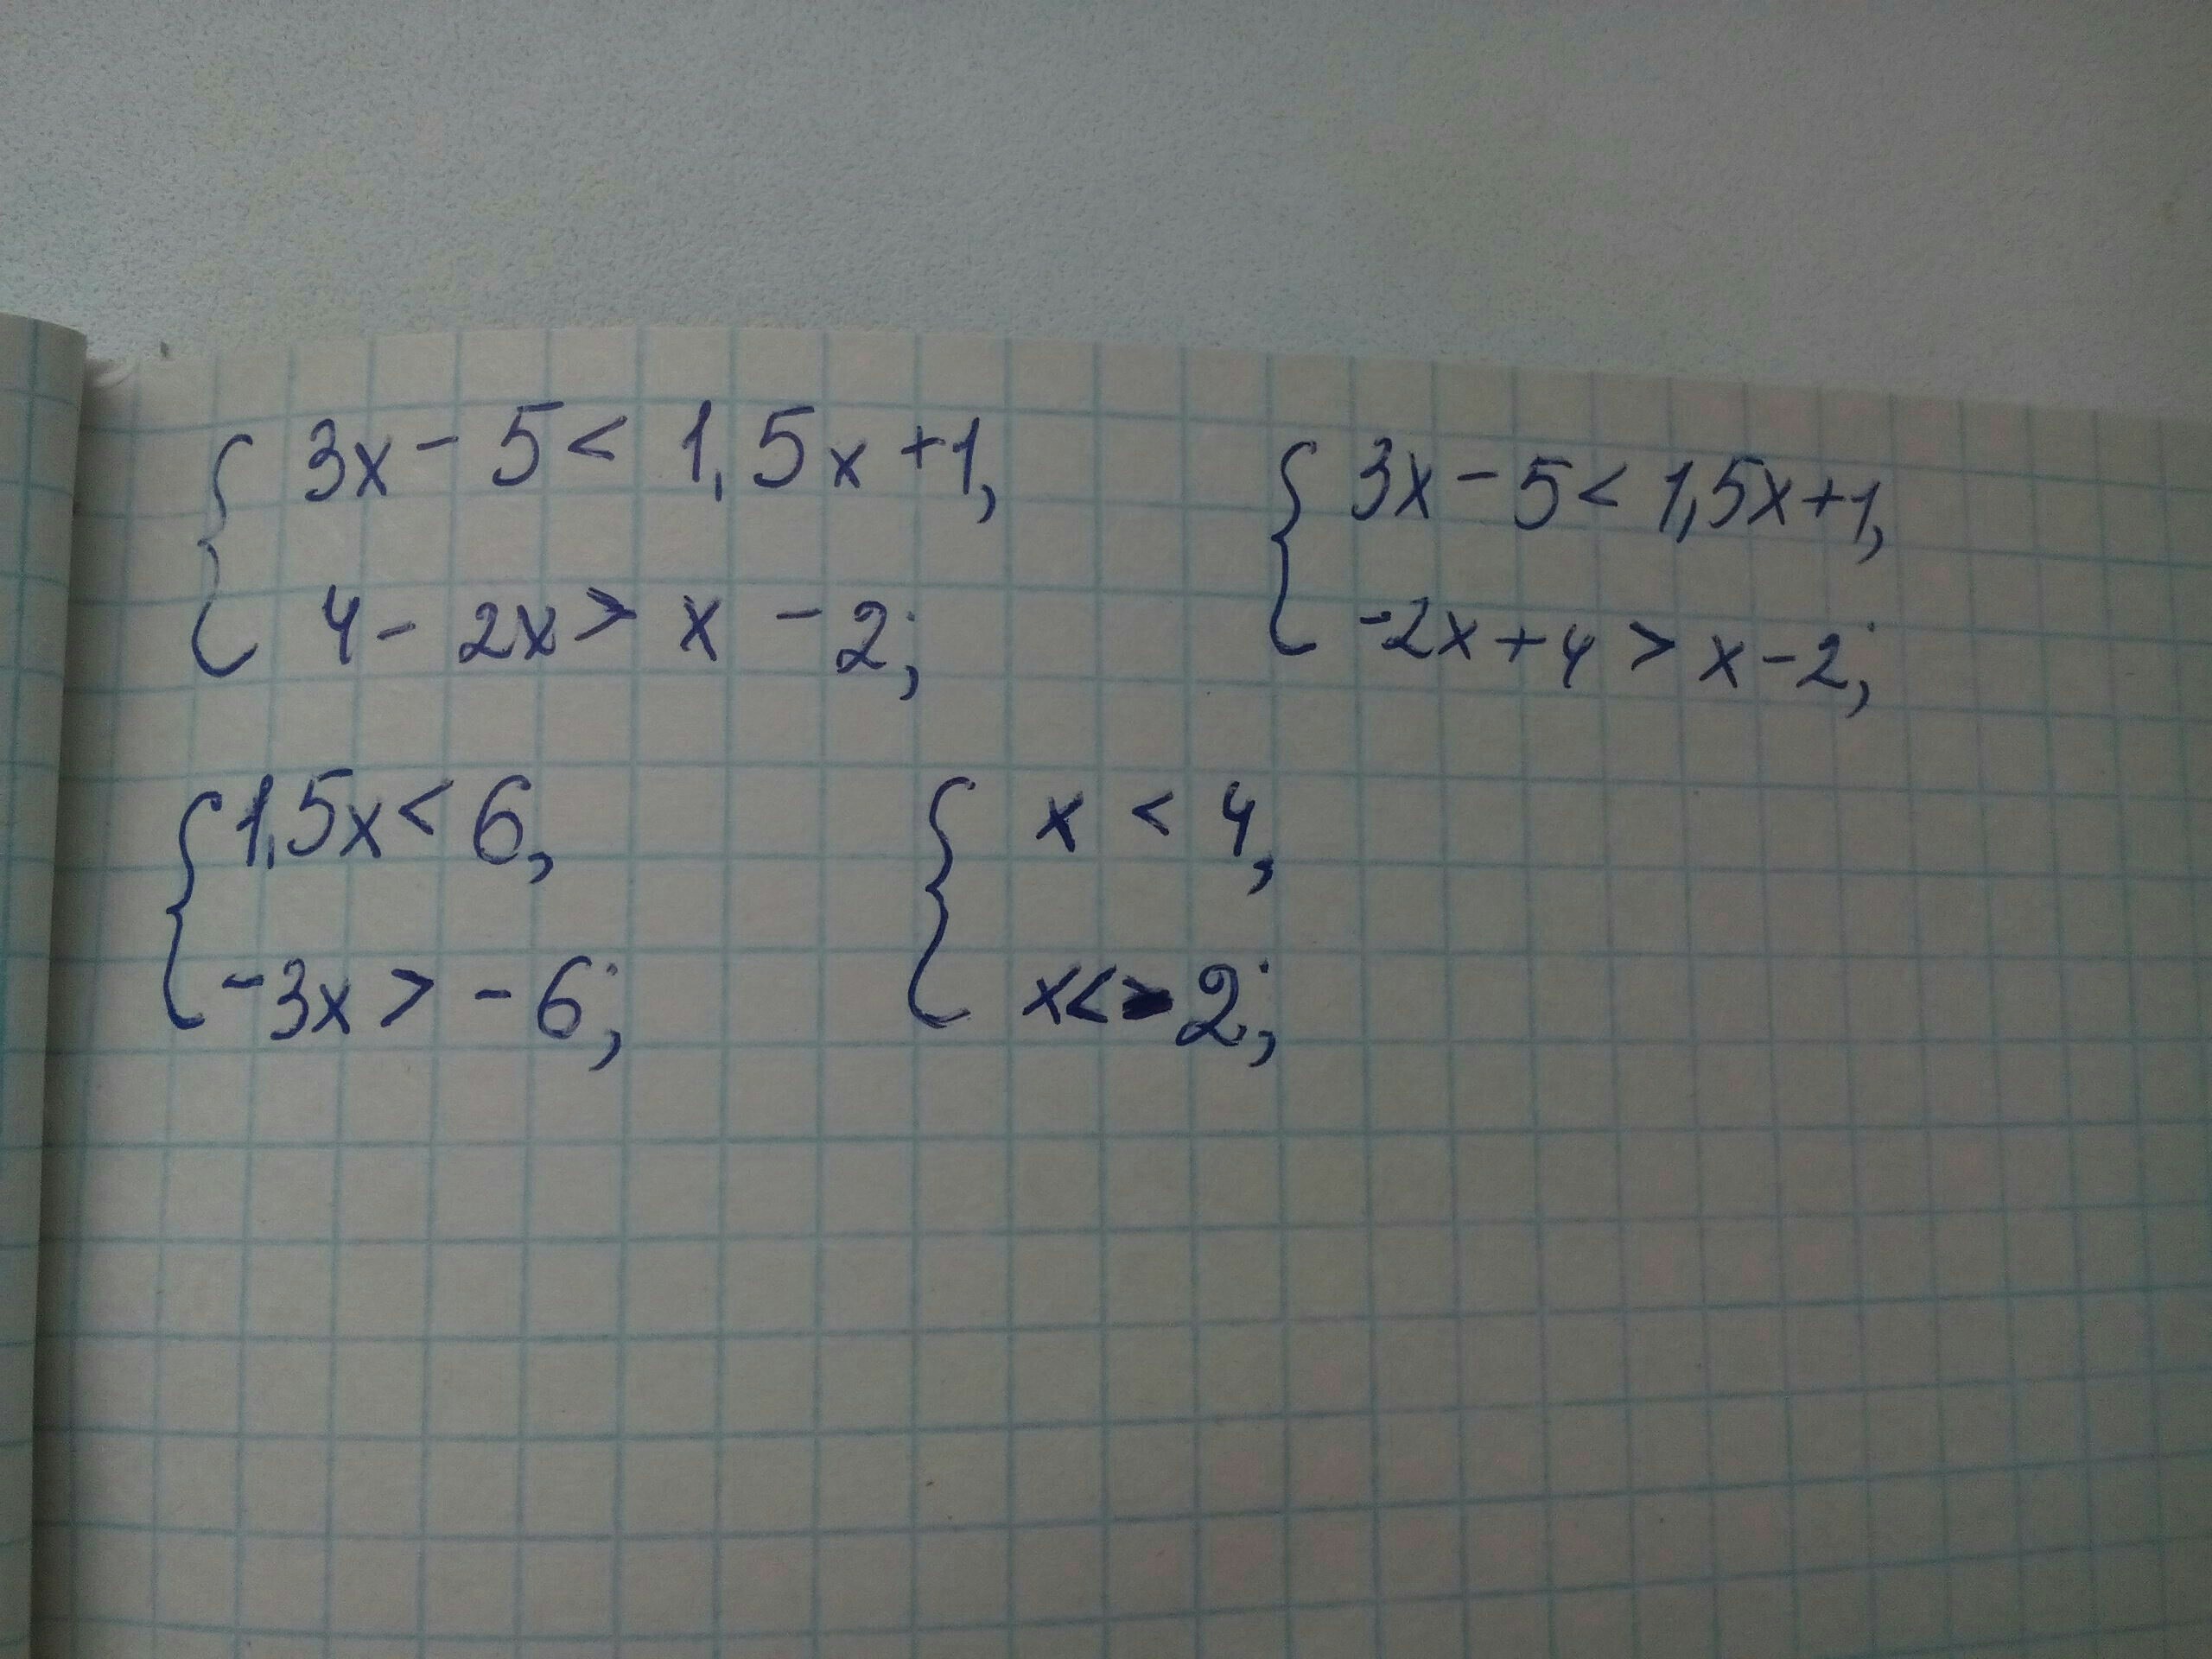 { 3x - 5 < 1,5x + 1,
4 - 2x > x - 2;
{ 3x - 5 < 1,5x + 1,
-2x + 4 > x - 2;
{ 1,5x < 6,
-3x > -6;
{ x < 4,
x < 2;